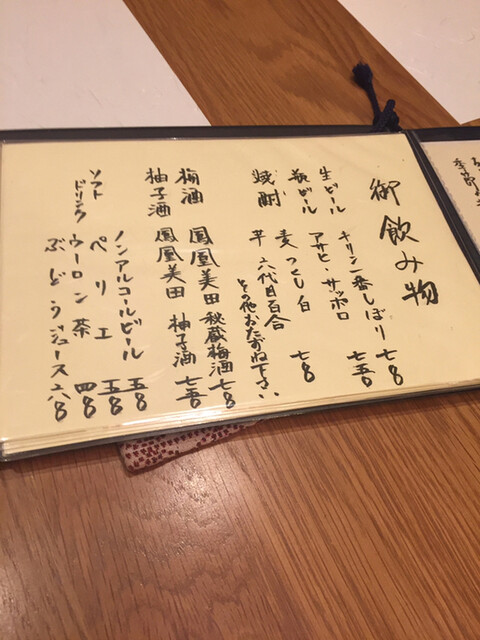 御飲み物
生ビール キリン一番しぼり 七〇〇
瓶ビール アサヒ・サッポロ 七五〇
焼酎 麦 つくし白 七〇〇
芋 六代目百合
その他おたずね下さい
梅酒 鳳凰美田 秘蔵梅酒 七〇〇
柚子酒 鳳凰美田 柚子酒 七五〇
ノンアルコールビール 五〇〇
ソフトドリンク ペリエ 五〇〇
ウーロン茶 四〇〇
ぶどうジュース 六〇〇
季節